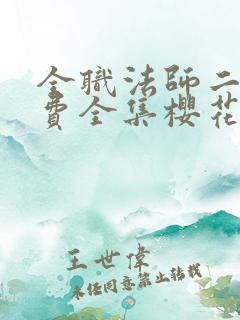 全職法師二
費全集櫻花
王世偉
未经同意禁止转载